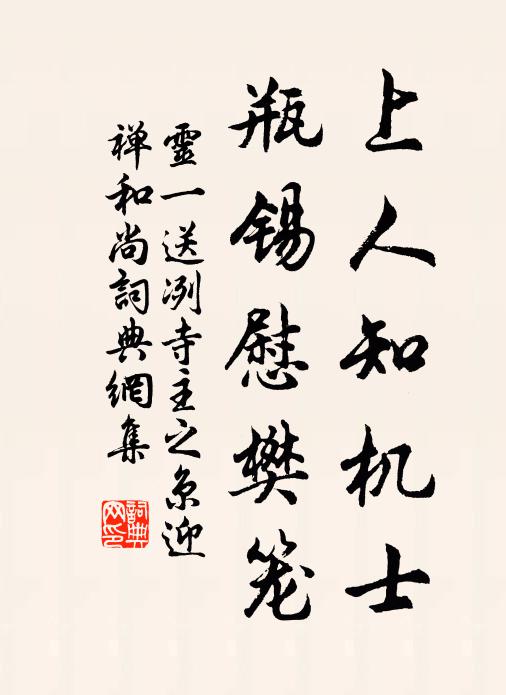 上人知机士
瓶锡慰樊笼
靈一送冽寺主之京迎
禅和尚詞典網集
詞典
网印